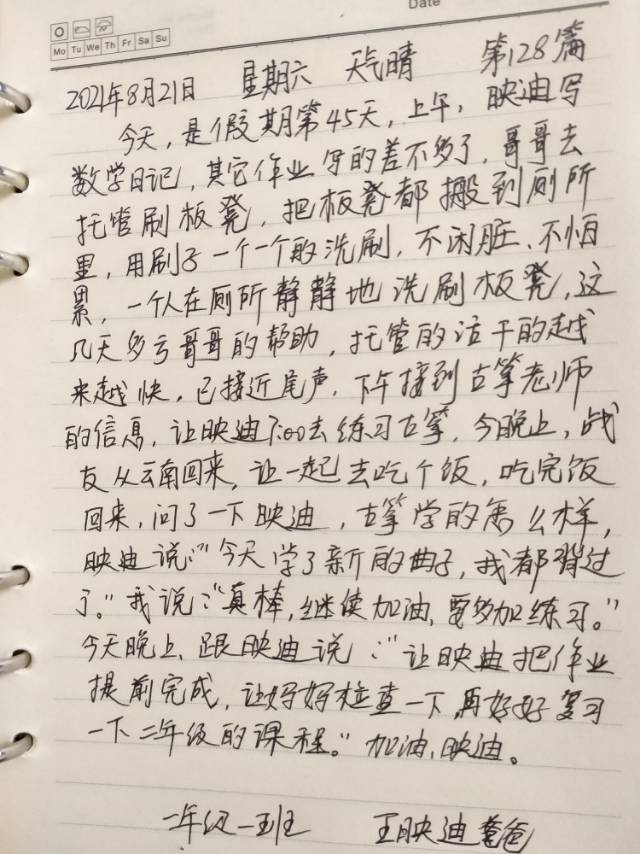 Date
Mo Tu We Th Fr Sa Su
2021年8月21日 星期六 天气晴 第128篇
今天,是假期第45天,上午,映迪写
数学日记,其它作业写的差不多了,哥哥去
托管刷板凳,把板凳都搬到厕所
里,用刷子一个一个的洗刷,不闲脏、不怕
累,一个人在厕所静静地洗刷板凳,这
几天多亏哥哥的帮助,托管的活干的越
来越快,已接近尾声,下午接到古筝老师
的信息,让映迪7:00去练习古筝,今晚上,战
友从云南回来,让一起去吃个饭,吃完饭
回来,问了一下映迪,古筝学的怎么样,
映迪说:“今天学了新的曲子,我都背过
了。”我说:“真棒,继续加油,要多加练习。”
今天晚上,跟映迪说:“让映迪把作业
提前完成,让妈妈检查一下,再好好复习
一下二年级的课程。”加油,映迪。
二年级一班 王映迪爸爸